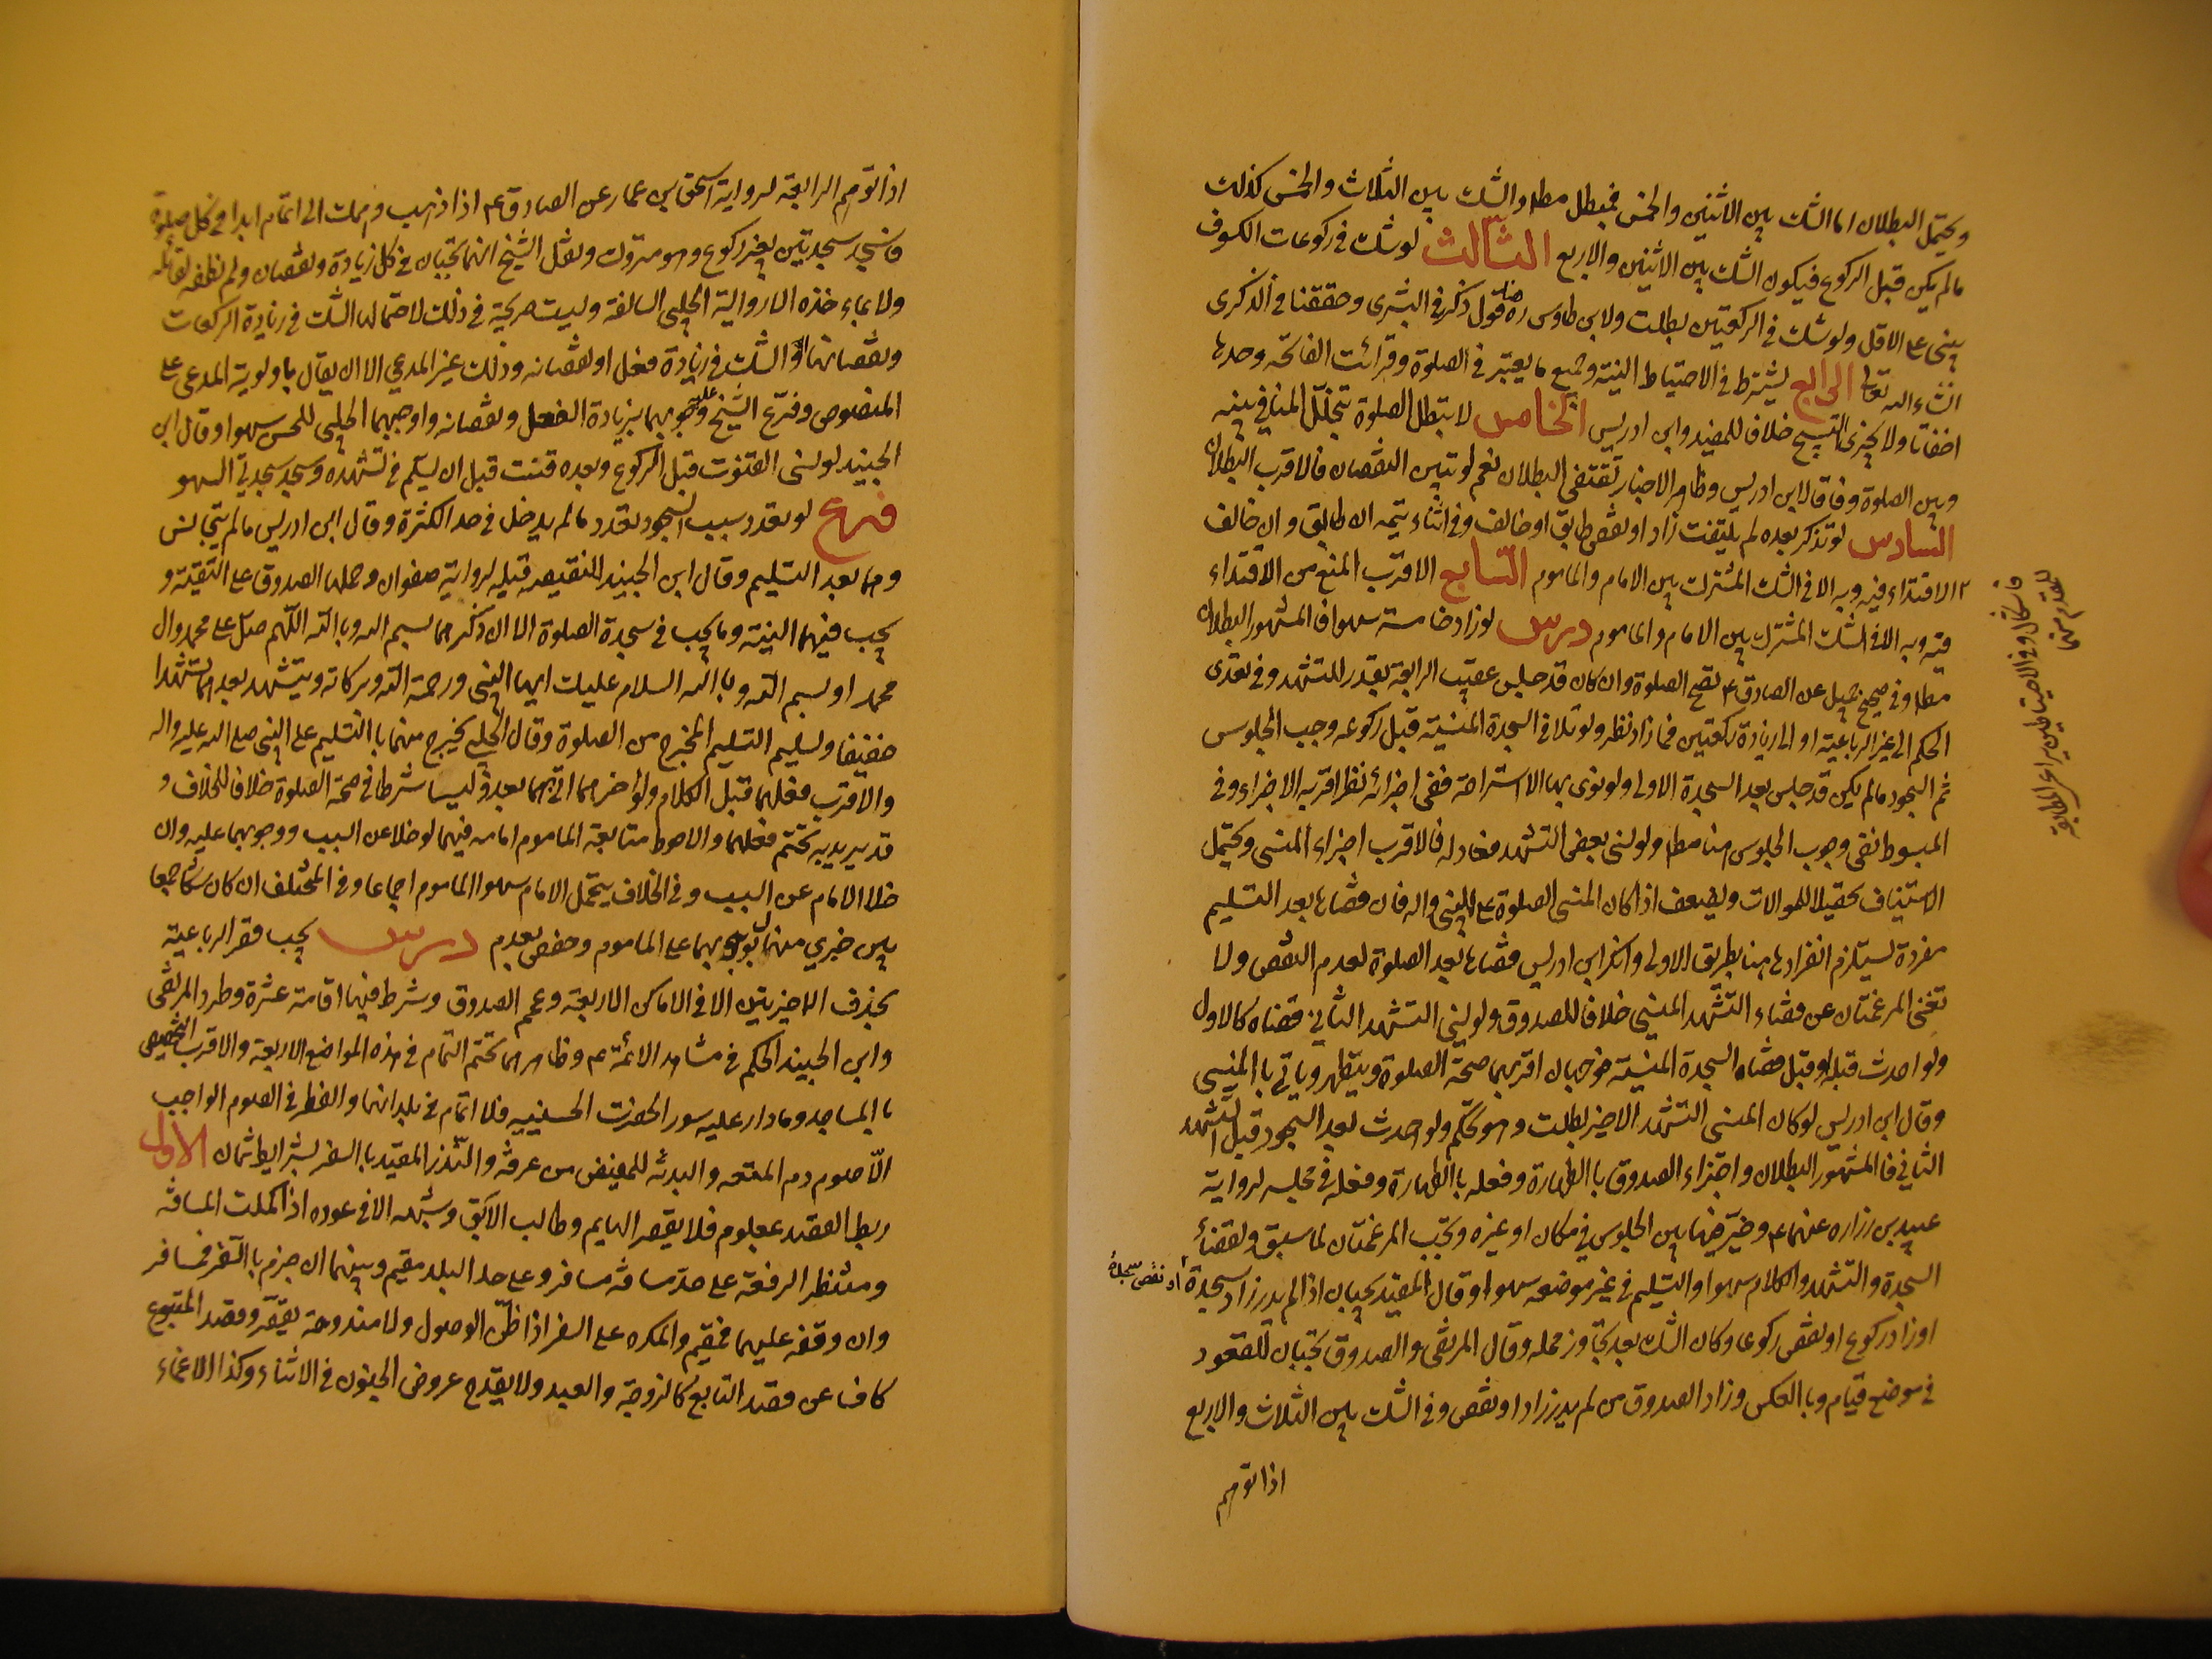 ويحتمل البطلان اما الشك بين الاثنين والخمس فمبطل مطلقا والشك بين الثلاث والخمس كذلك
مالم يكن قبل الركوع فيكون الشك بين الاثنين والاربع الثالث لو شك في ركوعات الكسوف
يبنى على الاقل ولو شك في الركعتين بطلت ولابن طاوس ره هنا قول ذكر في البشرى وحققنا في الذكرى
انشاء الله تعالى الرابع يشترط في الاحتياط النية وجميع ما يعتبر في الصلوة وقرائت الفاتحة وحدها
اخفاتا ولا يجزى التسبيح خلافا للمفيد وابن ادريس الخامس لا تبطل الصلوة بتخلل المنافي بينه
وبين الصلوة وفاقا لابن ادريس وظاهر الاخبار تقتضى البطلان نعم لو تبين النقصان فالاقرب البطلان
السادس لو تذكر بعده لم يلتفت زاد او نقص طابق او خالف وفي اثناء يتمه ان طابق وان خالف
الاقتداء فيه وبه الا في الشك المشترك بين الامام والماموم السابع الاقرب المنع من الاقتداء
فيه وبه الا في الشك المشترك بين الامام والماموم درس لو زاد خامسة سهوا فالمشهور البطلان
مطلقا وفي صحيح جميل عن الصادق ع تصح الصلوة وان كان قد جلس عقيب الرابعة بقدر التشهد وفي تعدى
الحكم الى غير الرباعية او الى زيادة ركعتين فما زاد نظر ولو تلافى السجدة المنسية قبل ركوعه وجب الجلوس
ثم السجود مالم يكن قد جلس بعد السجدة الاولى ولو نوى بها الاستراحة ففي اجزائه نظر اقربه الاجزاء وفي
المبسوط نفى وجوب الجلوس هنا مطلقا ولو نسى بعض التشهد فعاد له فالاقرب اجزاء المنسى ويحتمل
الاستيناف تحصيلا للموالات ويضعف اذا كان المنسى الصلوة على النبي واله فان قضاها بعد التسليم
مفردة يستلزم انفرادها هنا بطريق الاولى وانكر ابن ادريس قضاها بعد الصلوة لعدم النقص ولا
تغنى المرغمتان عن قضاء التشهد المنسي خلافا للصدوق ولو نسي التشهد الثاني قضاه كالاول
ولو احدث قبله او قبل قضاء السجدة المنسية فوجهان اقربهما صحة الصلوة ويتطهر وياتي با المنسى
وقال ابن ادريس لو كان المنسى التشهد الاخير بطلت وهو تحكم ولو احدث بعد السجود قبل التشهد
الثاني فا المشهور البطلان واجتزاء الصدوق با الطهارة وفعله با الطهارة وفعله في مجلسه لرواية
عبيد بن زراره عنهما ع وخير فيها بين الجلوس في مكان او غيره وتجب المرغمتان لما سبق ولقضاء
السجدة والتشهد والكلام سهوا والتسليم في غير موضعه سهوا وقال المفيد يجبان اذا لم يدر زاد سجدة او نقص سجدة
او زاد ركوع او نقص ركوعا وكان الشك بعد تجاوز محله وقال المرتضى والصدوق تجبان للقعود
في موضع قيام وبا العكس وزاد الصدوق من لم يدر زاد او نقص وفي الشك بين الثلاث والاربع
اذا توهم
اذا توهم الرابعة لرواية اسحق بن عمار عن الصادق ع اذا ذهب وهمك الى اتمام ابدا في كل صلوة
فاسجد سجدتين بغير ركوع وهو متروك ونقل الشيخ انهما تجبان في كل زيادة ونقصان ولم نظفر بقائله
ولا بماءخذه الا رواية الحلبى السالفة وليست صريحة في ذلك لاحتمالها الشك في زيادة الركعات
ونقصانها او الشك في زيادة فعل او نقصانه وذلك غير المدعي الا ان يقال باولوية المدعى على
المنصوص وفرع الشيخ عليه وجوبهما بزيادة الفعل ونقصانه واوجبهما الحلبى للحن سهوا وقال ابن
الجنيد لو نسى القنوت قبل الركوع وبعده قنت قبل ان يسلم في تشهده وسجد سجدتي السهو
فرع لو تعدد سبب السجود تعدد مالم يدخل في حد الكثرة وقال ابن ادريس مالم يتجانس
وهما بعد التسليم وقال ابن الجنيد للنقيصه قبله لرواية صفوان وحملها الصدوق على التقية و
يجب فيهما النية وما يجب في سجدة الصلوة الا ان ذكرهما بسم الله وبا لله اللهم صل على محمد وال
محمد او بسم الله وبا لله السلام عليك ايها النبي ورحمة الله وبركاته ويتشهد بعدهما تشهدا
خفيفا وليسلم التسليم المخرج من الصلوة وقال الحلبي يخرج منهما با التسليم على النبي صلى الله عليه واله
والاقرب فعلهما قبل الكلام ولو اخرهما اتى بهما بعد وليسا شرطا في صحة الصلوة خلافا للخلاف و
قد يريد به تحتم فعلهما والاحوط متابعة الماموم امامه فيهما لو خلا عن السبب ووجوبهما عليه وان
خلا الامام عن السبب وفي الخلاف يتحمل الامام سهو الماموم اجماعا وفي المختلف ان كان شكا جمعا
بين خبري منهال بوجوبهما على الماموم وحفص بعدم درس يجب قصر الرباعية
بحذف الاخيرتين الا في الاماكن الاربعة وعمم الصدوق وشرط فيها اقامة عشرة وطرد المرتضى
وابن الجنيد الحكم في مشاهد الائمة ع وظاهرهما تحتم التمام في هذه المواضع الاربعة والاقرب التخصيص
با المساجد وما دار عليه سور الحضرت الحسينيه فلا اتمام في بلدانها والفطر في الصوم الواجب
الا صوم دم المتعه والبدنه للمفيض من عرفه والنذر المقيد با السفر بشرايط ثمان الاول
ربط القصد بمعلوم فلا يقصر الهايم وطالب الابق وشبهه الا في عوده اذا كملت المسافه
ومنتظر الرفقة على حد مسافه مسافر وعلى حد البلد مقيم وبينهما ان جزم با السفر فمسافر
وان وقف عليهما فمقيم والمكره على السفر اذا ظن الوصول ولا مندوحة يقصر وقصد المتبوع
كاف عن قصد التابع كالزوجة والعبد ولا يقدح عروض الجنون في الاثناء وكذا الاغماء